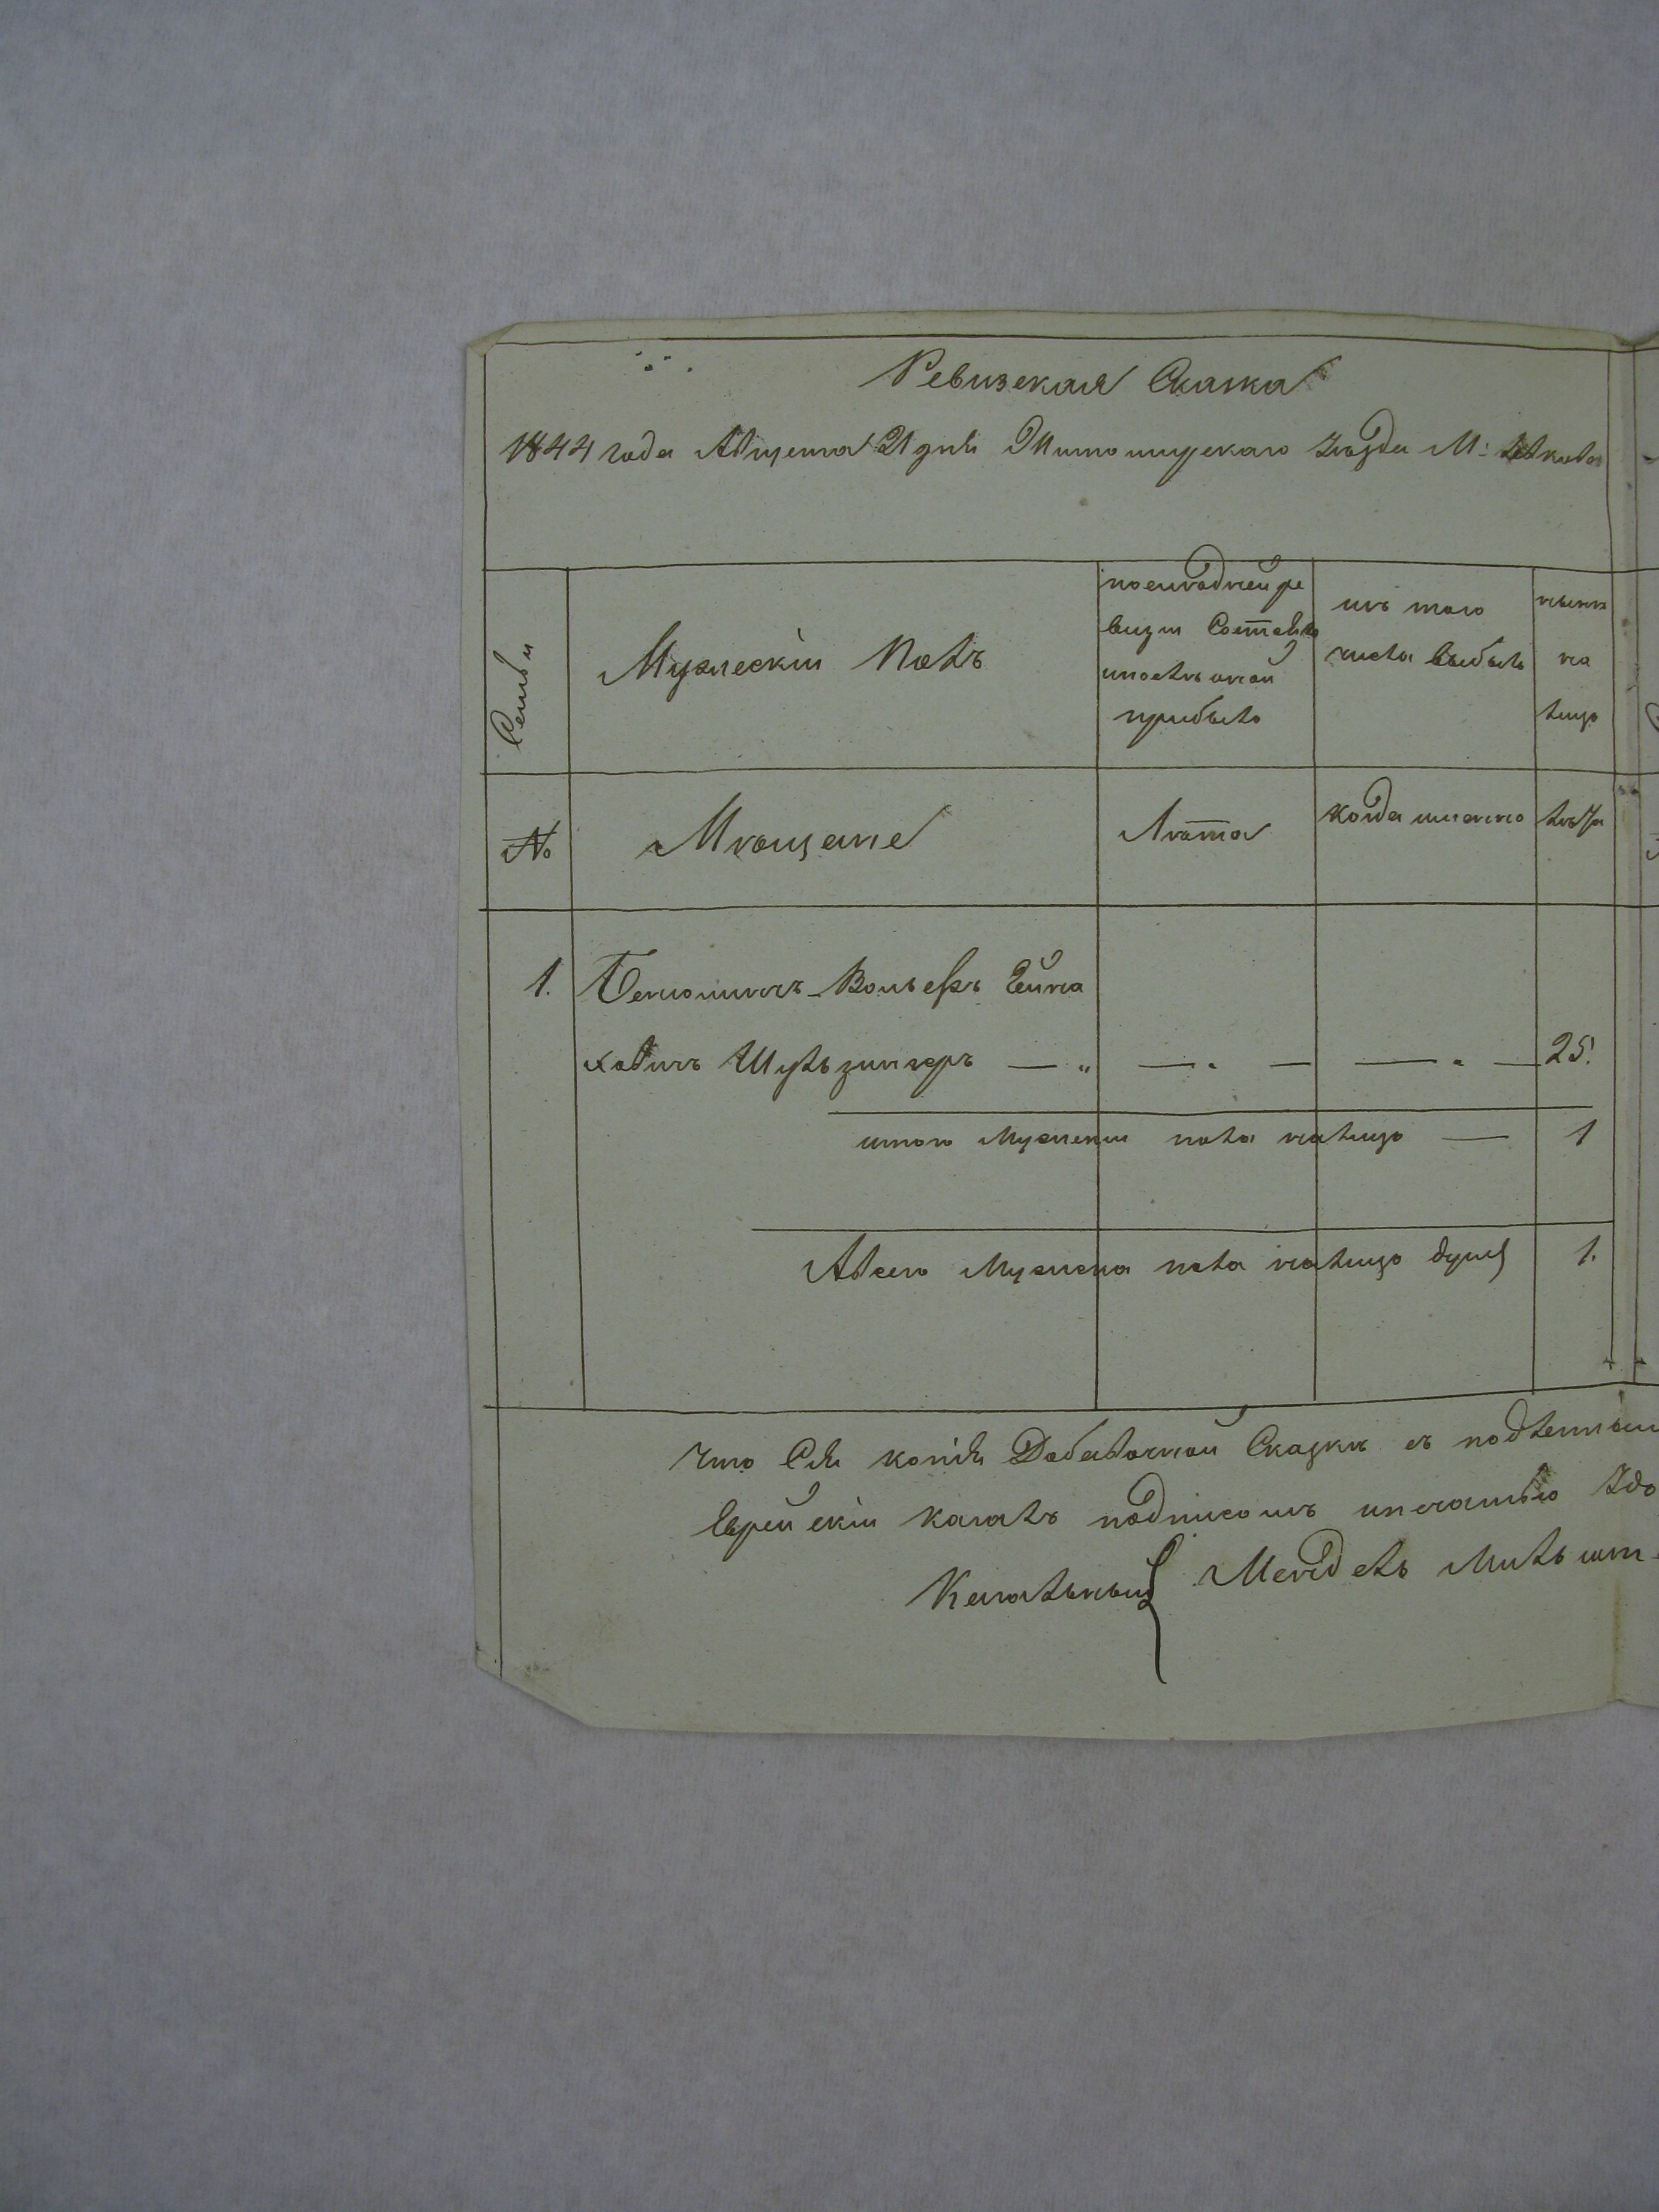 Ревизская Сказка
1844 года Августа 21 дня Житомирскаго уѣзда М:
Семьи
Мужескій Полъ
по последней ре
визіи Состояло
и послѣ оной
прибыло
изъ того
числа выбыло
нынѣ
на
лицо
№
Мѣщане
Лѣта
когда именно
лѣта
1. Беніоминъ-Вольфъ Хейна
ховичъ Шульзингеръ — „ — „ — — „ — 25.
итого Мужеска пола налицо — 1
Всего Мужеска пола налицо душъ 1.
Что Сія копія Добавочной Сказки съ подлинною
Еврейскій Кагалъ подписомъ и печатью удо
Кагальный Мендель Мильшт